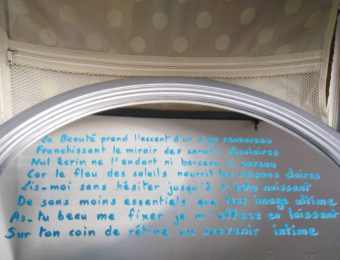 La Beauté prend l'accent d'un renouveau
Franchissant le miroir des séculaires
Nul Ecrin ne l'endort ni berceau ni
Car le flou des soleils nourrit les claires
Lis-moi sans hésiter jusqu'à l'echo naissant
De sons moins essentiels que leur image ultime
As-tu beau me fixer je m'efface en laissant
Sur ton coin de rétine un souvenir intime